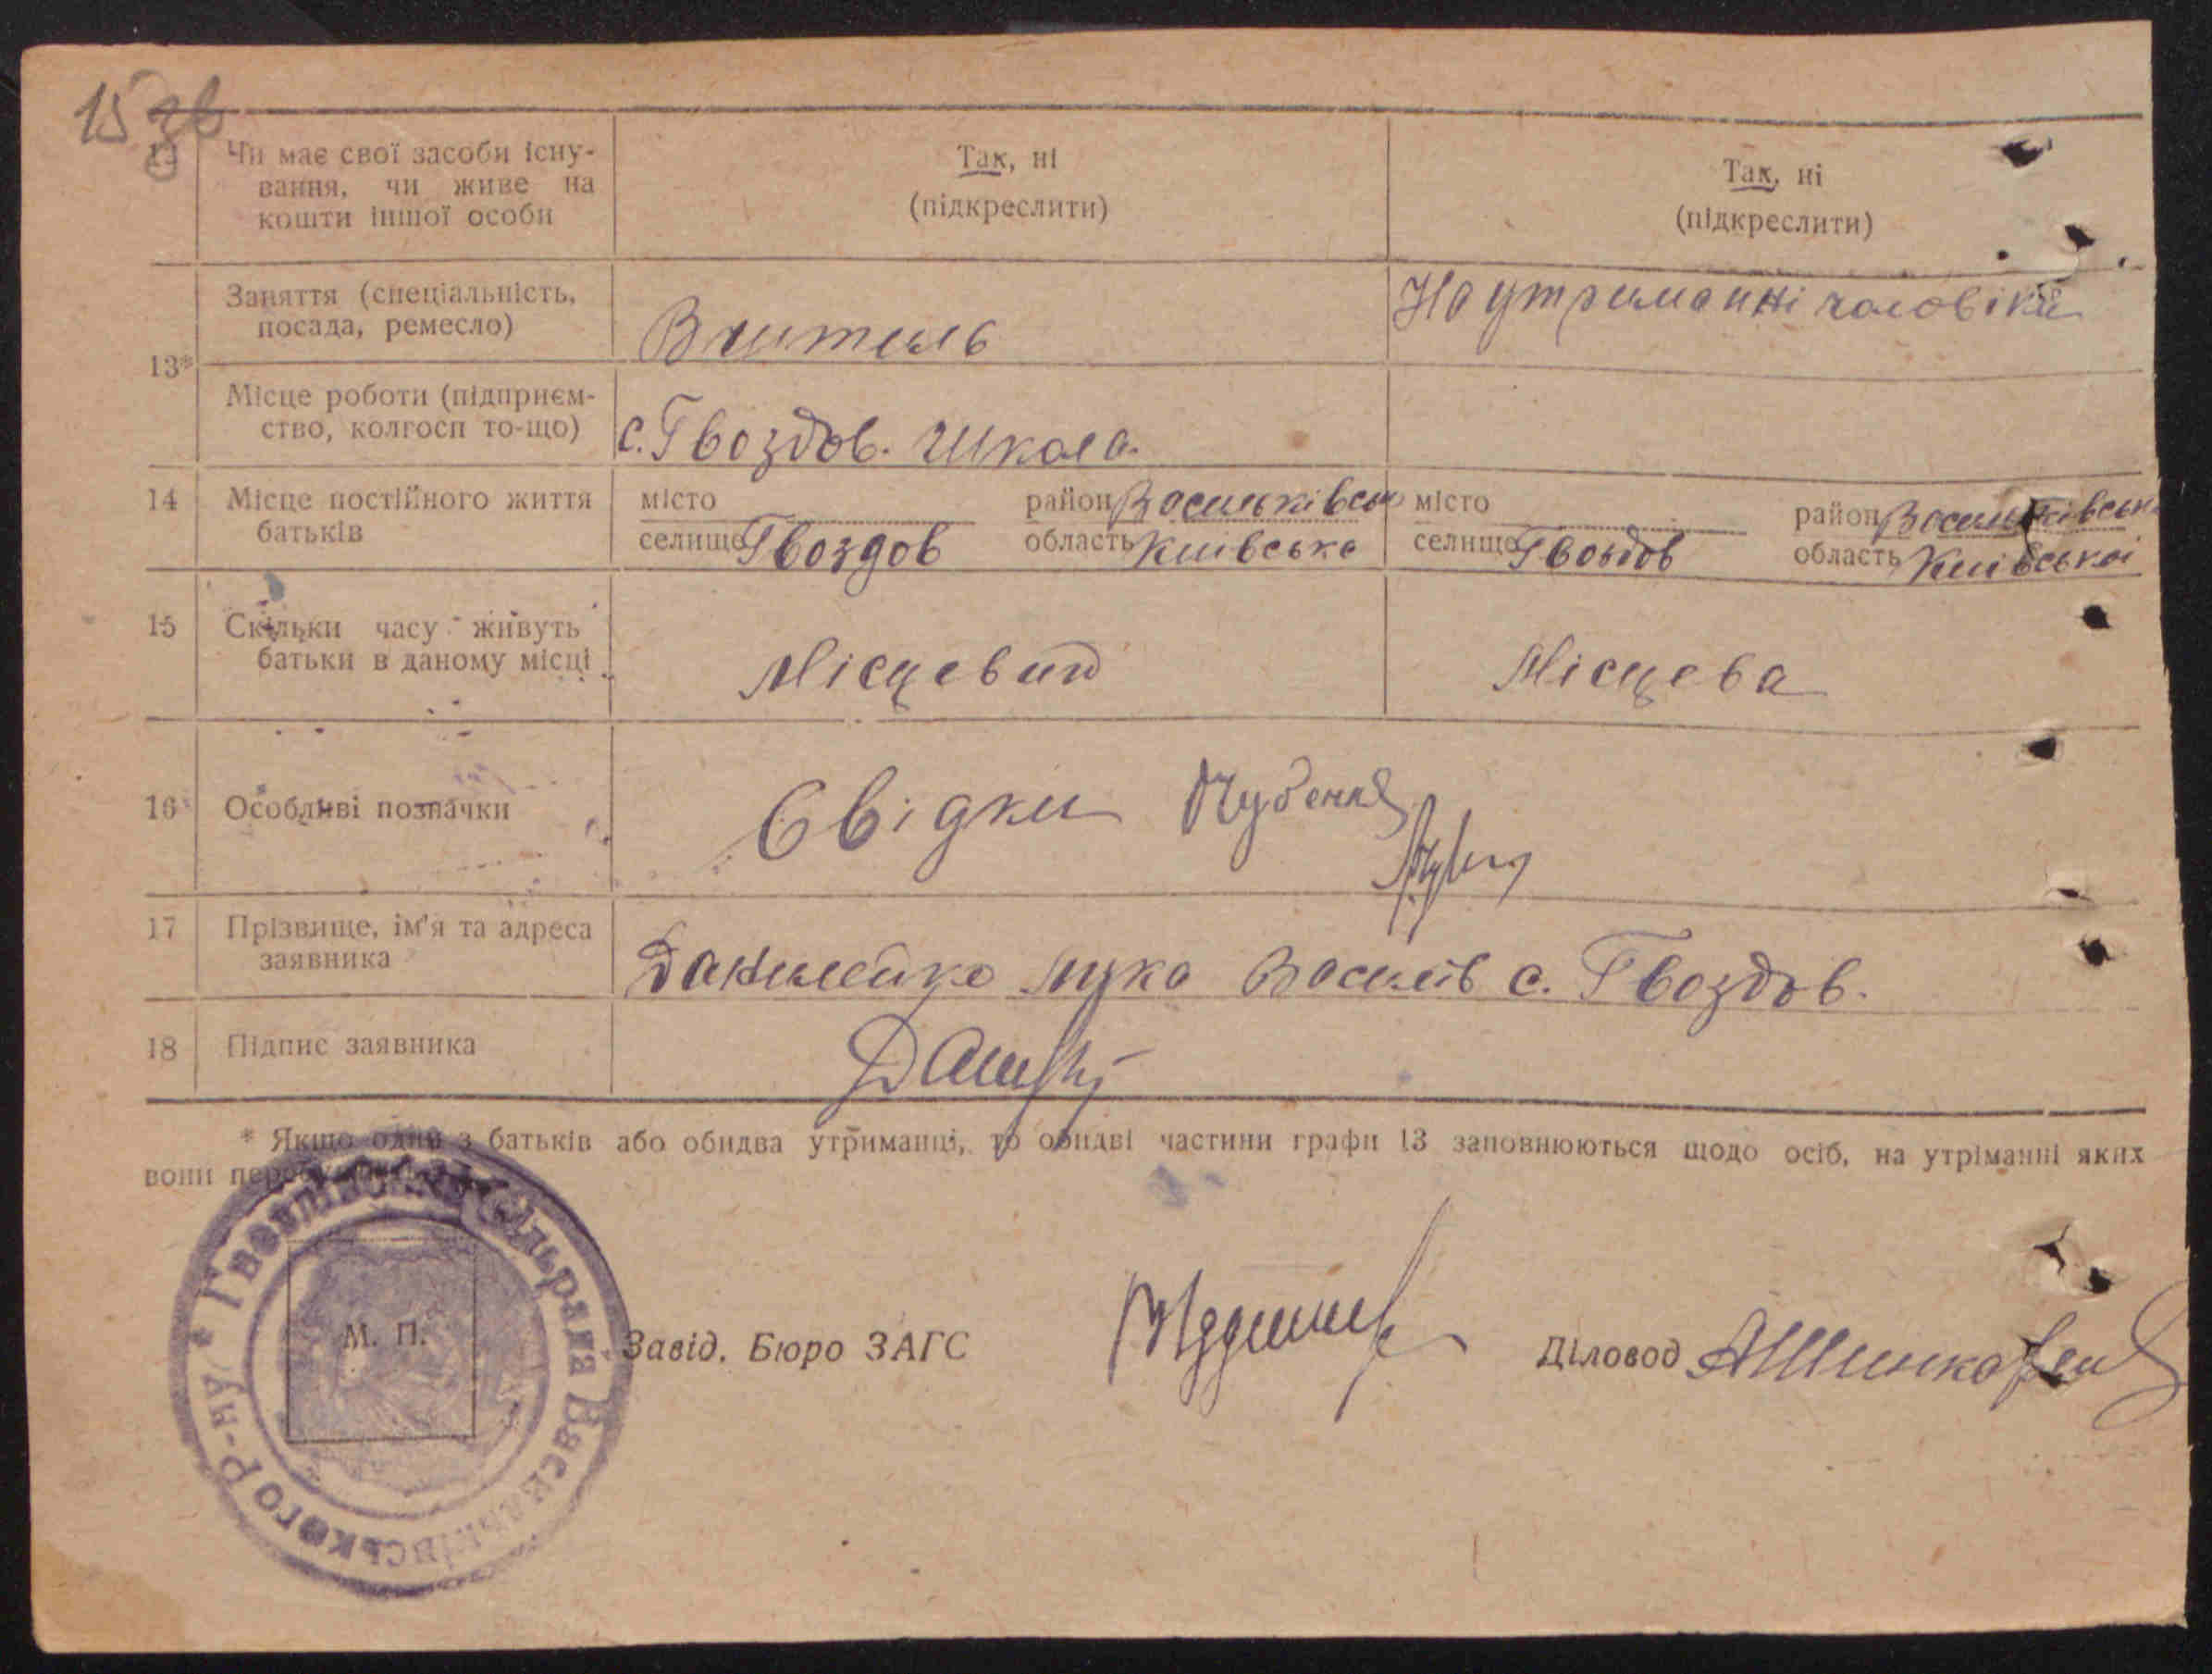 15 зв
Чи має свої засоби існу-
вання, чи живе на
кошти іншої особи
Так, ні
(підкреслити)
Так, ні
(підкреслити)
13*
Заняття (спеціальність,
посада, ремесло)
Вчитель
На утриманні чоловіка
Місце роботи (підприєм-
ство, колгосп то-що)
с. Гвоздов. Школа.
14
Місце постійного життя
батьків
місто
район Васильківськ
селище Гвоздов
область Київська
місто
район Васильківськ
селище Гвоздов
область Київської
15
Скільки часу живуть
батьки в даному місці
Місцевий
Місцева
16
Особливі позначки
Свідки
17
Прізвище, ім'я та адреса
заявника
Данилейко Лука Василів с. Гвоздов.
18
Підпис заявника
* Якщо один з батьків або обидва утриманці, то обидві частини графи 13 заповнюються щодо осіб, на утріманні яких
вони
М. П.
* Гвоздівська сільрада Васильківського р-ну
Завід. Бюро ЗАГС
Діловод